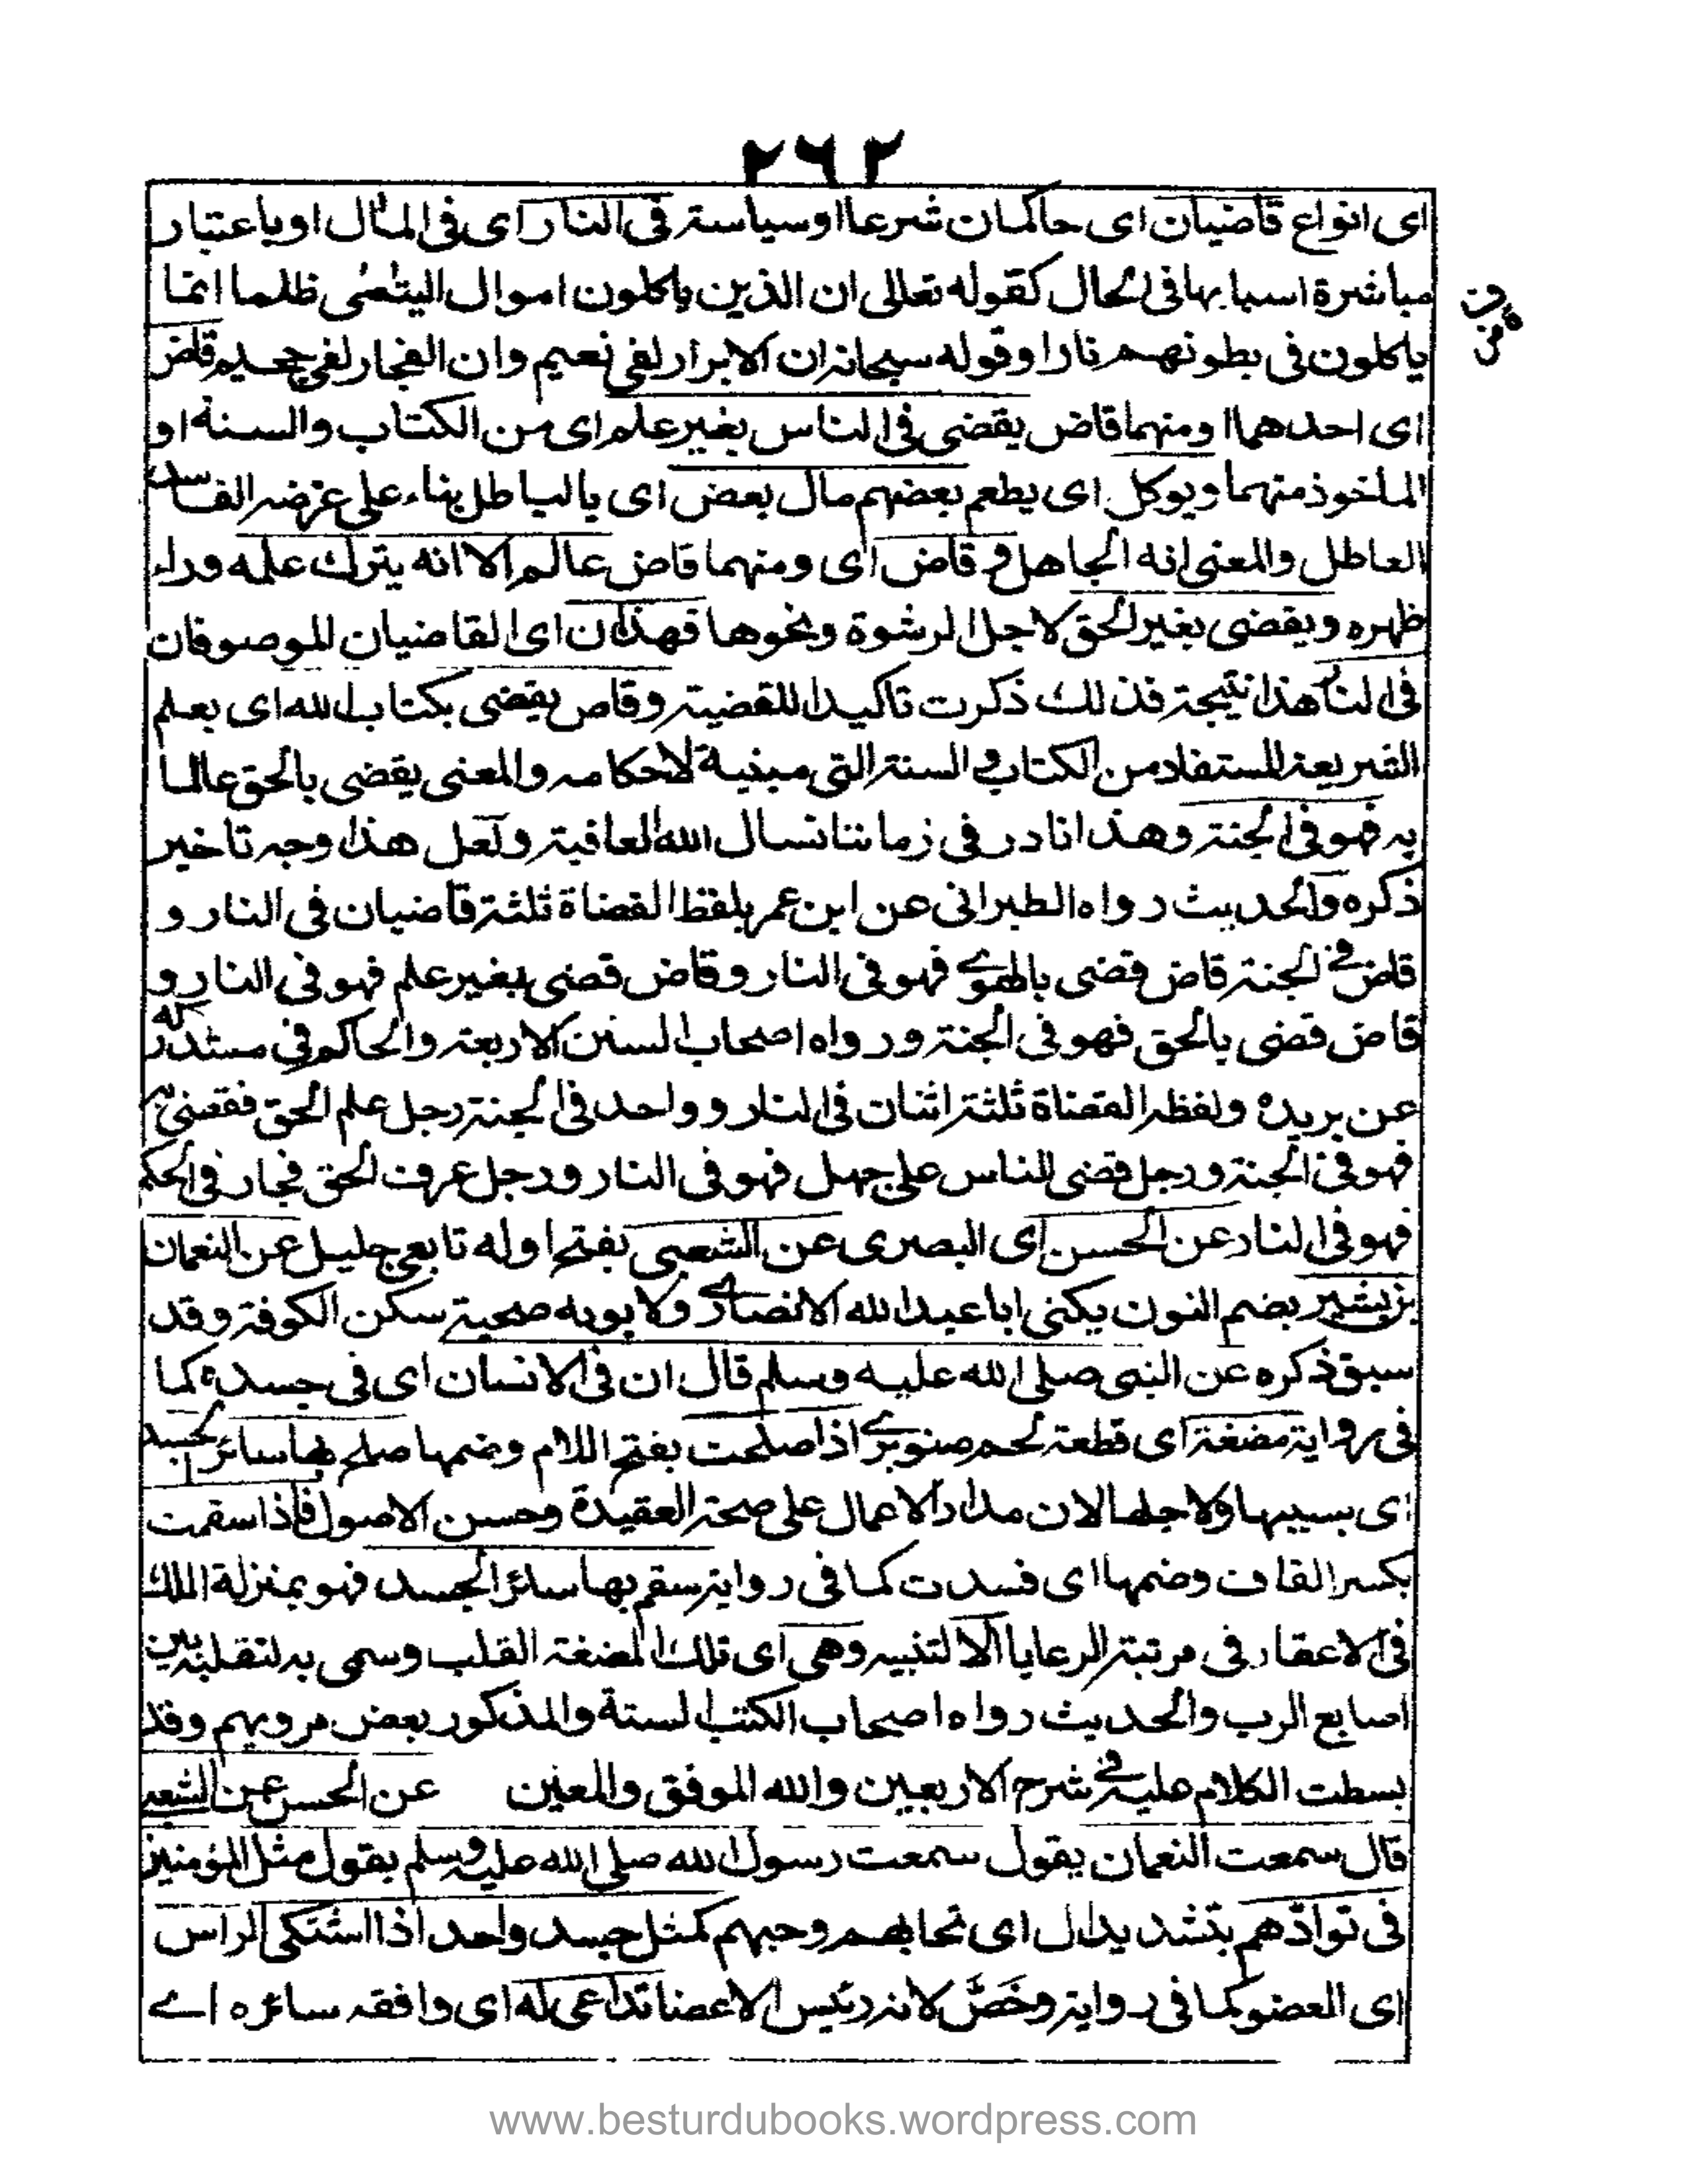 ٢٦٢
اى انواع قاضيان اى حاكمان شرعا اوسياسة فى النار اى فى المآل او باعتبار
مباشرة اسبابها فى الحال كقوله تعالى ان الذين ياكلون اموال اليتٰمٰى ظلما انما
ياكلون فى بطونهم نارا وقوله سبحانه ان الابرار لفى نعيم وان الفجار لفى جحيم قاض
اى احدهما ومنهما قاض يقضى فى الناس بغير علم اى من الكتاب والسنة او
الماخوذ منهما ويوكل اى يطعم بعضهم مال بعض اى بالباطل بناء على غرضه الفاسد
العاطل والمعنى انه الجاهل وقاض اى ومنهما قاض عالم الا انه يترك علمه وراء
ظهره ويقضى بغير الحق لاجل الرشوة ونحوها فهذان اى القاضيان الموصوفان
فى النار هذا نتيجة فذلك ذكرت تاكيدا للقضية وقاض يقضى بكتاب الله اى بعلم
الشريعة المستفاد من الكتاب و السنة التى مبنية لاحكامه والمعنى يقضى بالحق عالما
به فهو فى الجنة وهذا نادر فى زماننا نسال الله العافية ولعل هذا وجه تاخير
ذكره والحديث رواه الطبرانى عن ابن عمر بلفظ القضاة ثلثة قاضيان فى النار و
قاض فے الجنة قاض قضى بالهوے فهو فى النار وقاض قضى بغير علم فهو فى النار و
قاض قضى بالحق فهو فى الجنة ورواه اصحاب السنن الاربعة والحاكم فى مستدركه
عن بريدة ولفظه القضاة ثلثة اثنان فى النار وواحد فى الجنة رجل علم الحق فقضى به
فهو فى الجنة ورجل قضى للناس على جهل فهو فى النار ورجل عرف الحق فجار فى الحكم
فهو فى النار عن الحسن اى البصرى عن الشعبى بفتح اوله تابعى جليل عن النعمان
بن بشير بضم النون يكنى ابا عبد الله الانصارے ولابويه صحبة سكن الكوفة وقد
سبق ذكره عن النبى صلى الله عليه وسلم قال ان فى الانسان اى فى جسده كما
فى رواية مضغة اى قطعة لحم صنوبرے اذا صلحت بفتح اللام وضمها صلح بها سائر الجسد
اى بسببها ولاجلها لان مدار الاعمال على صحة العقيدة وحسن الاصول فاذا سقمت
بكسر القاف وضمها اى فسدت كما فى رواية سقم بها سائر الجسد فهو بمنزلة الملك
فى مرتبة الرعايا الا لتنبيه وهى اى تلك المضغة القلب وسمى به لتقلبه بين
اصابع الرب والحديث رواه اصحاب الكتب الستة والمذكور بعض مرويهم وقد
بسطت الكلام عليه فے شرح الاربعين والله الموفق والمعين عن الحسن عن الشعبى
قال سمعت النعمان يقول سمعت رسول الله صلى الله عليه وسلم يقول مثل المؤمنين
فى توادّهم بتشديد دال اى تحابهم وحبهم كمثل جسد واحد اذا اشتكى الراس
اى العضو كما فى رواية وخَصَّ لانه رئيس الاعضا تداعى له اى وافقه سائره اے
www.besturdubooks.wordpress.com